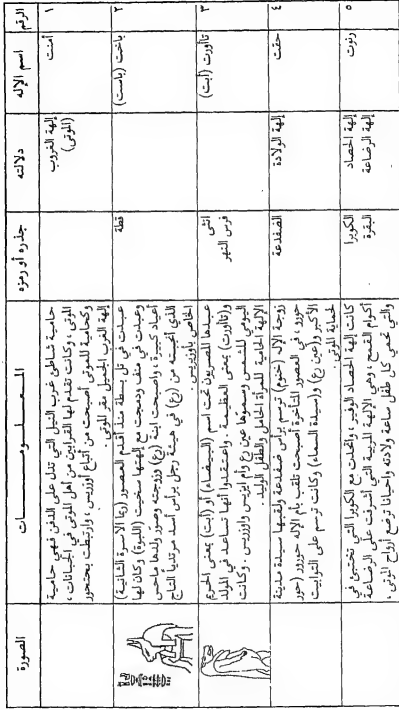 الرقم
اسم الإله
دلالته
جذره أو رمزه
المعلومات
الصورة
١
أمنت
إلهة الغروب
(الموتى)
حامية شاطئ غرب النيل التي تدل على الدفن فهي حامية
الموتى، وكانت تقدم لها القرابين من أهل الموتى في الجبانات،
وكحامية للموتى أصبحت من أتباع أوزريس، وارتبطت بحتحور
إلهة الغرب الجميل مقر الموتى.
٢
باخت (باست)
قطة
عبدت في تل بسطة منذ أقدم العصور (ربما الأسرة الثانية)
وعبدت في منف ودمجت مع إلهتها سخمت (اللبوة) وكان لها
أعياد كبيرة، وأصبحت ابنة (رع) وزوجته وصور ولدها ماحس
الذي أنجبته من (رع) في هيئة رجل برأس أسد مرتدياً التاج
الخاص بأوزيريس.
٣
تاأورت (أبت)
أنثى
فرس النهر
عبدها المصريون تحت اسم (البيضاء) أو (أبت) بمعنى الحرم
و(تاأورت) بمعنى العظيمة. واعتقدوا أنها تساعد في المولد
اليومي للشمس وسموها عين رع وأم إيزيس وأوزريس. وكانت
الإلهة الحامية للمرأة الحامل والطفل الوليد.
٤
حقت
إلهة الولادة
الضفدعة
زوجة الإله (خنوم) ترسم برأس ضفدعة ولقبها سيدة مدينة
حورو، في العصور المتأخرة أصبحت تلقب بأم الإله حورور (حور
الأكبر و(عين رع) و(سيدة السماء) وكانت ترسم على التوابيت
لحماية الموتى.
٥
رنوت
إلهة الحصاد
إلهة الرضاعة
الكوبرا
البقرة
كانت إلهة الحصاد الوفير، واتحدت مع الكوبرا التي تختبئ في
أكوام القمح، وهي الإلهة المربية التي أشرفت على الرضاعة
والتي تحمي كل طفل ساعة ولادته وأحياناً ترضع أرواح الموتى.